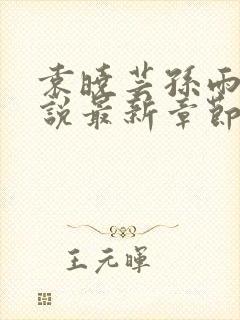 袁曉芸孫雨
說最新章節
王元暉